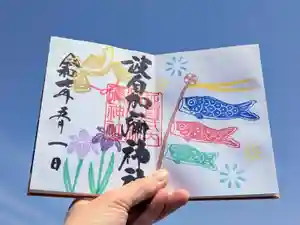 波自加彌神社
令和七年五月一日